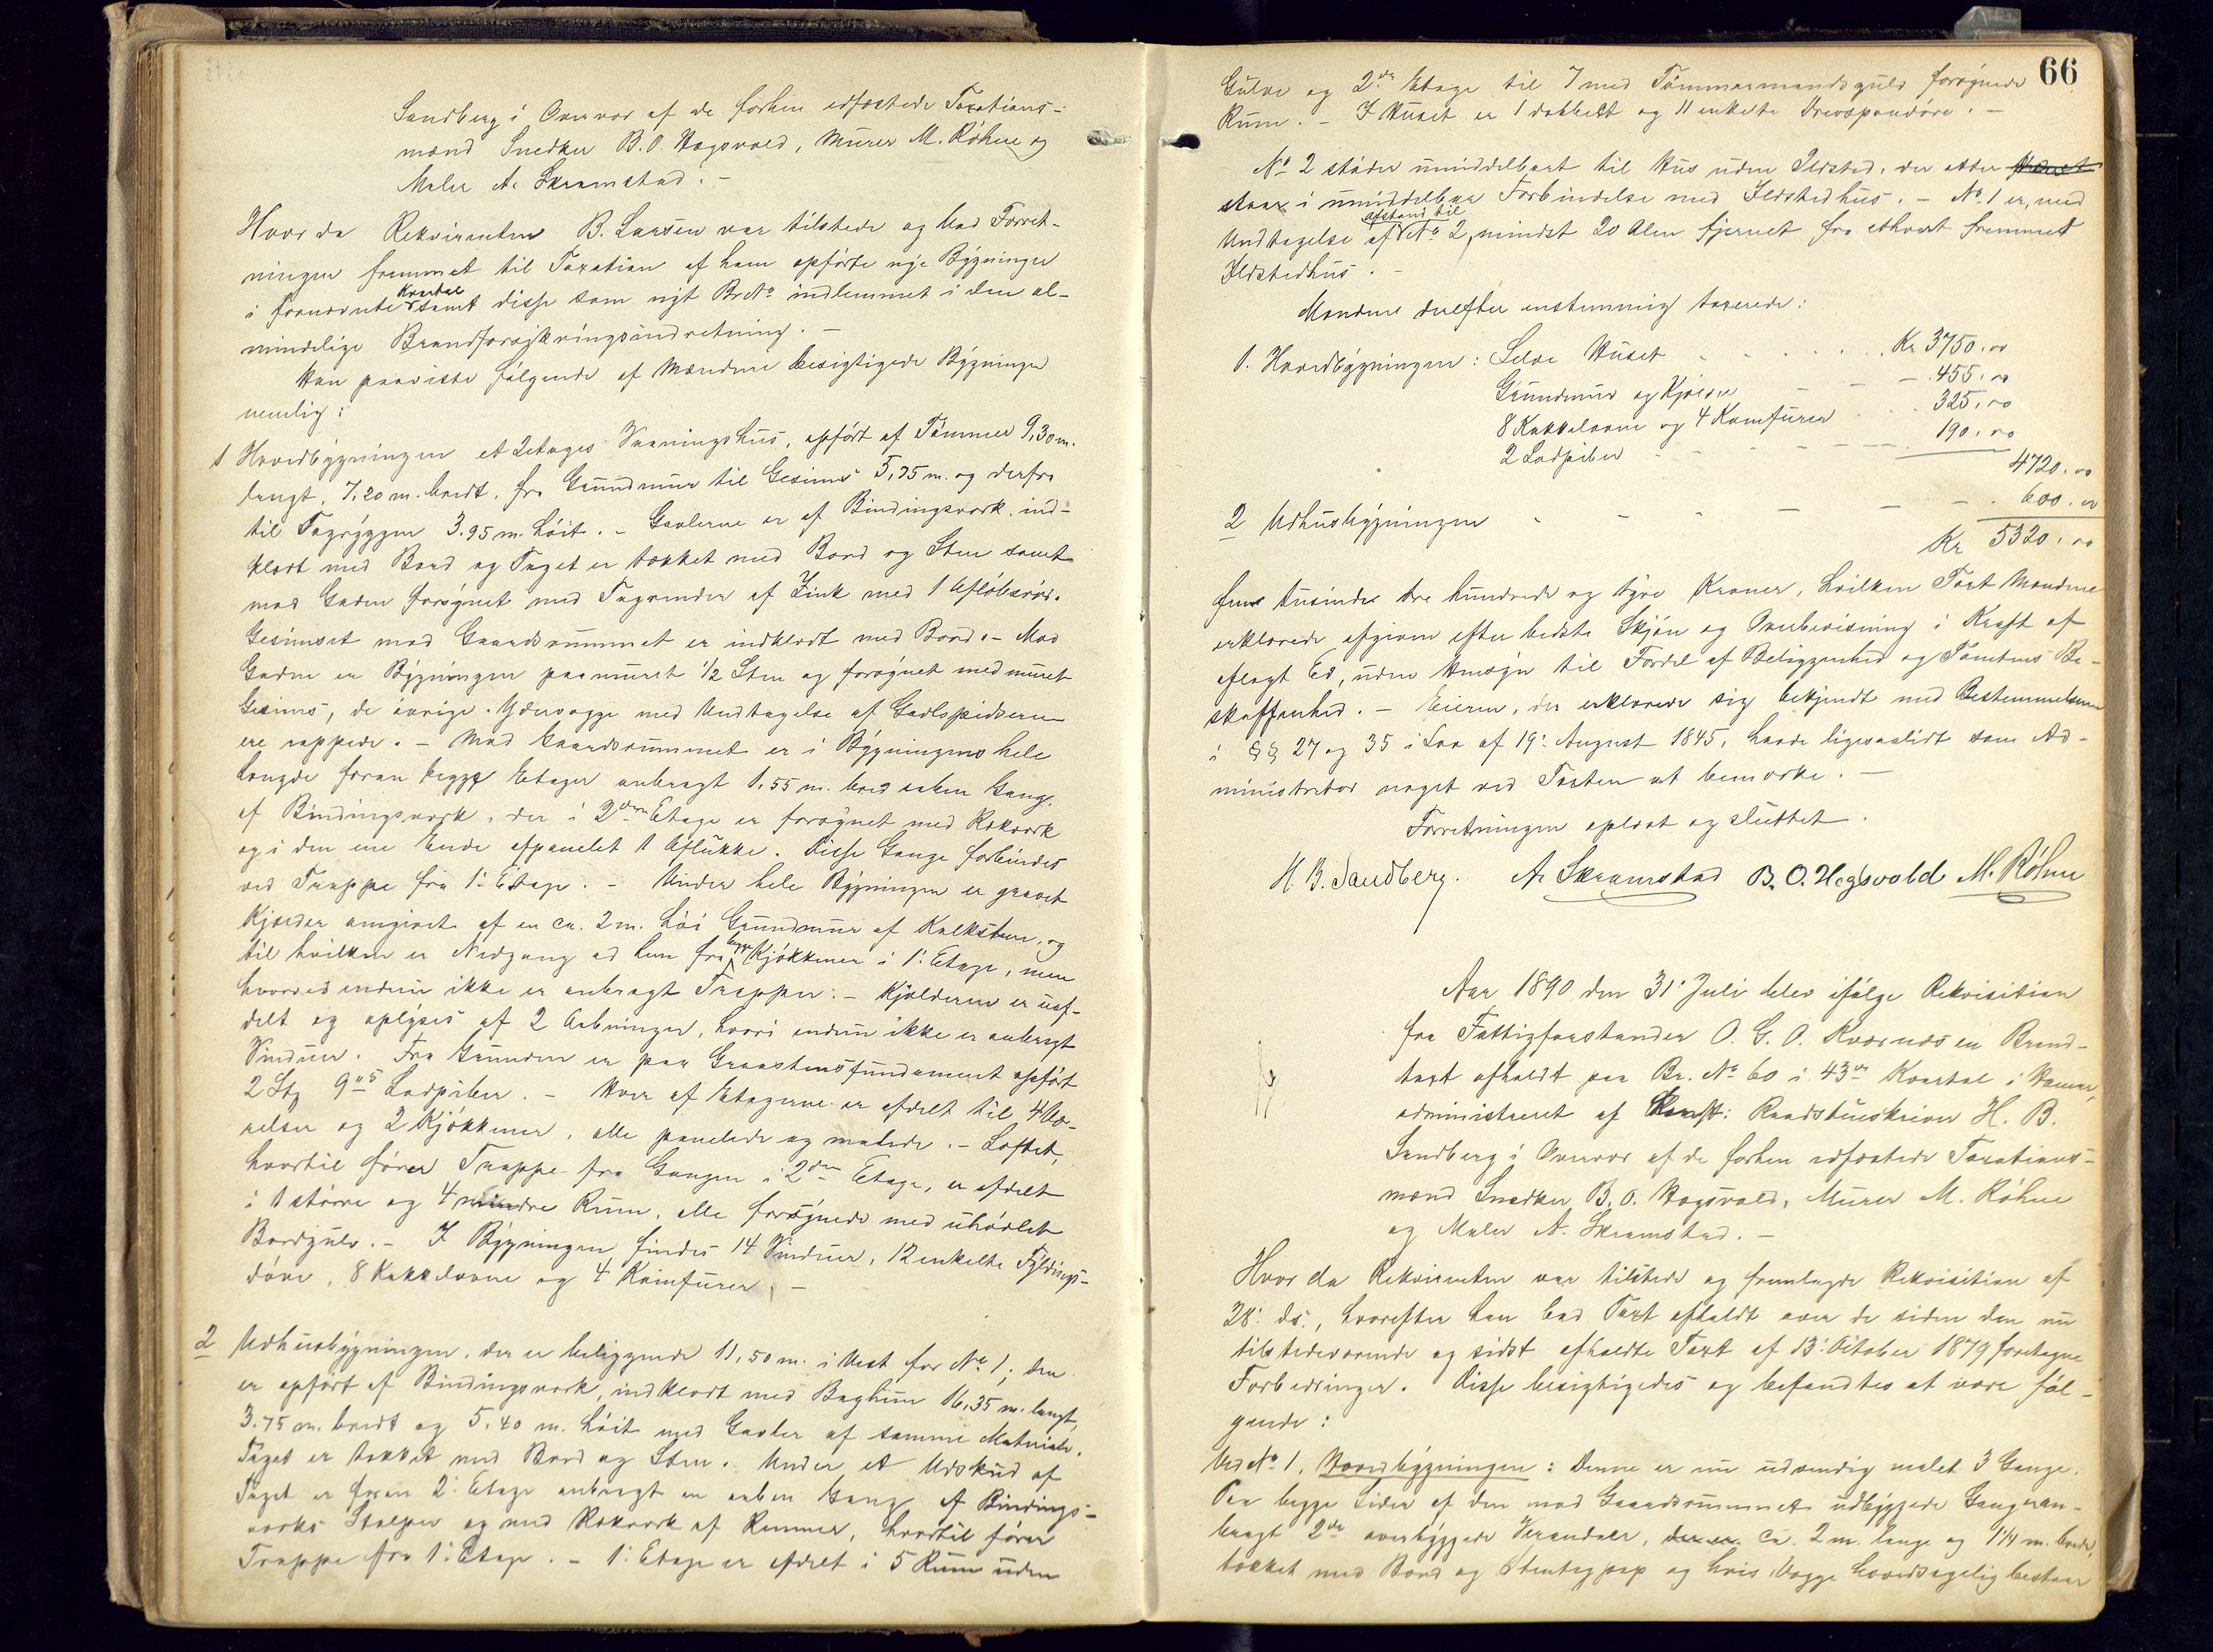 Sandberg i Overvær af de forhen edfæstede Taxations-
mænd Snedker B. O. Hagsvold, Murer M. Röhne og
Maler A. Skramstad. -
Hvor da Rekvirenten B. Larsen var tilstede og bad Forret-
ningen fremmet til Taxation af ham opförte nye Bygninger
i fornævnte Kvartal samt disse som nyt Br No indlemmet i den al-
mindelige Brandforsikringsindretning. -
Han paaviste fölgende af Mændene besigtigede Bygninger
nemlig:
1 Hovedbygningen et 2etages Vaaningshus, opfört af Tömmer 9,30 m.
langt, 7,20 m. bredt, fra Grundmur til Gesims 5,75 m. og derfra
til Tagryggen 3.95 m. höit. - Gavlerne er af Bindingsværk, ind-
klædt med Bord og Taget er tækket med Bord og Sten samt
mod Gaden forsynet med Tagrender af Zink med 1 Aflöbsrör.
Gesimset mod Gaardsrummet er indklædt med Bord. - Mod
Gaden er Bygningen paamuret 1/2 Sten og forsynet med muret
Gesims, de övrige Ydervægge med Undtagelse af Gavlspidserne
ere rappede. - Mod Gaardsrummet er i Bygningens hele
Længde foran begge Etager anbragt 1,55 m. bred aaben Gang,
af Bindingsværk, der i 2den Etage er forsynet med Rækværk
og i den ene Ende afpanelet 1 Aflukke. Disse Gange forbindes
ved Trappe fra 1: Etage. - Under hele Bygningen er gravet
Kjælder omgivet af en ca. 2 m. höi Grundmur af Kalksten, og
til hvilken er Nedgang ad Lem fra begge Kjökkener i 1: Etage, men
hvorved endnu ikke er anbragt Trapper. - Kjælderen er uaf-
delt og oplyses af 2 Aabninger, hvori endnu ikke er anbragt
Vinduer. Fra Grunden er paa Graastensfundament opfört
2 Stk 9" Ladpiber. - Hver af Etagerne er afdelt til 4 Væ-
relser og 2 Kjökkener, alle panelede og malede. - Loftet,
hvortil förer Trappe fra Gangen i 2den Etage, er afdelt
i 1 större og 4 mindre Rum, alle forsynede med uhövlet
Bordgulv. - I Bygningen findes 14 Vinduer, 12 enkelte Fyldings-
döre, 8 Kakkelovne og 4 Komfurer. -
2 Udhusbygningen, der er beliggende 11,50 m. i Vest for No 1; den
er opfört af Bindingsværk, indklædt med Baghun 16,35 m. langt,
3.75 m. bredt og 5,40 m. höit med Gavler af samme Materiale.
Taget er tækket med Bord og Sten. Under et Udskud af
Taget er foran 2: Etage anbragt en aaben Gang af Bindings-
værks Stolper og med Rækværk af Rammer, hvortil förer
Trappe fra 1: Etage. - 1: Etage er afdelt i 5 Rum uden
66
Gulve og 2den Etage til 7 med Tömmermandsgulv forsynede
Rum. - I Huset er 1 dobbelt og 11 enkelte Træspondöre. -
No 2 stöder umiddelbart til Hus uden Ildsted, der atter
staar i umiddelbar Forbindelse med Ildstedhus. - No 1 er, med
Undtagelse af afstand til No 2, mindst 20 Alen fjernet fra ethvert fremmed
Ildstedhus. -
Mændene derefter enstemmig taxerede:
1. Hovedbygningen: Selve Huset Kr 3750.00
Grundmur og Kjelder - 455.00
8 Kakkelovne og 4 Komfurer 325.00
2 Ladpiber 190.00
4720.00
2 Udhusbygningen - 600.00
Kr 5320.00
fem tusinde tre hundrede og tyve Kroner, hvilken Taxt Mændene
erklærede afgiven efter bedste Skjön og Overbevisning i Kraft af
aflagt Ed, uden Hensyn til Fordel af Beliggenhed og Tomtens Be-
skaffenhed. - Eieren, der erklærede sig bekjendt med Bestemmelserne
i §§ 27 og 35 i Lov af 19: August 1845, havde ligesaalidt som Ad-
ministrator noget ved Taxten at bemærke. -
Forretningen oplæst og sluttet.
H. B. Sandberg. A. Skramstad B. O. Hagsvold M. Röhne
Aar 1890 den 31: Juli blev ifölge Rekvisition
fra Fattigforstander O. G. O. Kværnæs en Brand-
taxt afholdt paa Br. No 60 i 43de Kvartal i Hamar,
administreret af Const: Raadstueskriver H. B.
Sandberg i Overvær af de forhen edfæstede Taxations-
mænd Snedker B. O. Hagsvold, Murer M. Röhne
og Maler A. Skramstad. -
Hvor da Rekvirenten var tilstede og fremlagde Rekvisition af
28: ds., hvorefter han bad Taxt afholdt over de siden den nu
tilstedeværende og sidst afholdte Taxt af 13: Oktober 1879 foretagne
Forbedringer. Disse besigtigedes og befandtes at være föl-
gende:
Ved No 1, Hovedbygningen: Denne er nu udvendig malet 3 Gange.
Paa begge Sider af den mod Gaardsrummet udbyggede Gang er an-
bragt 2de overbyggede Verandaer, ca. 2 m. lange og 1 1/4 m. brede,
tækket med Bord og Stentagpap og hvis Vægge hovedsagelig bestaar